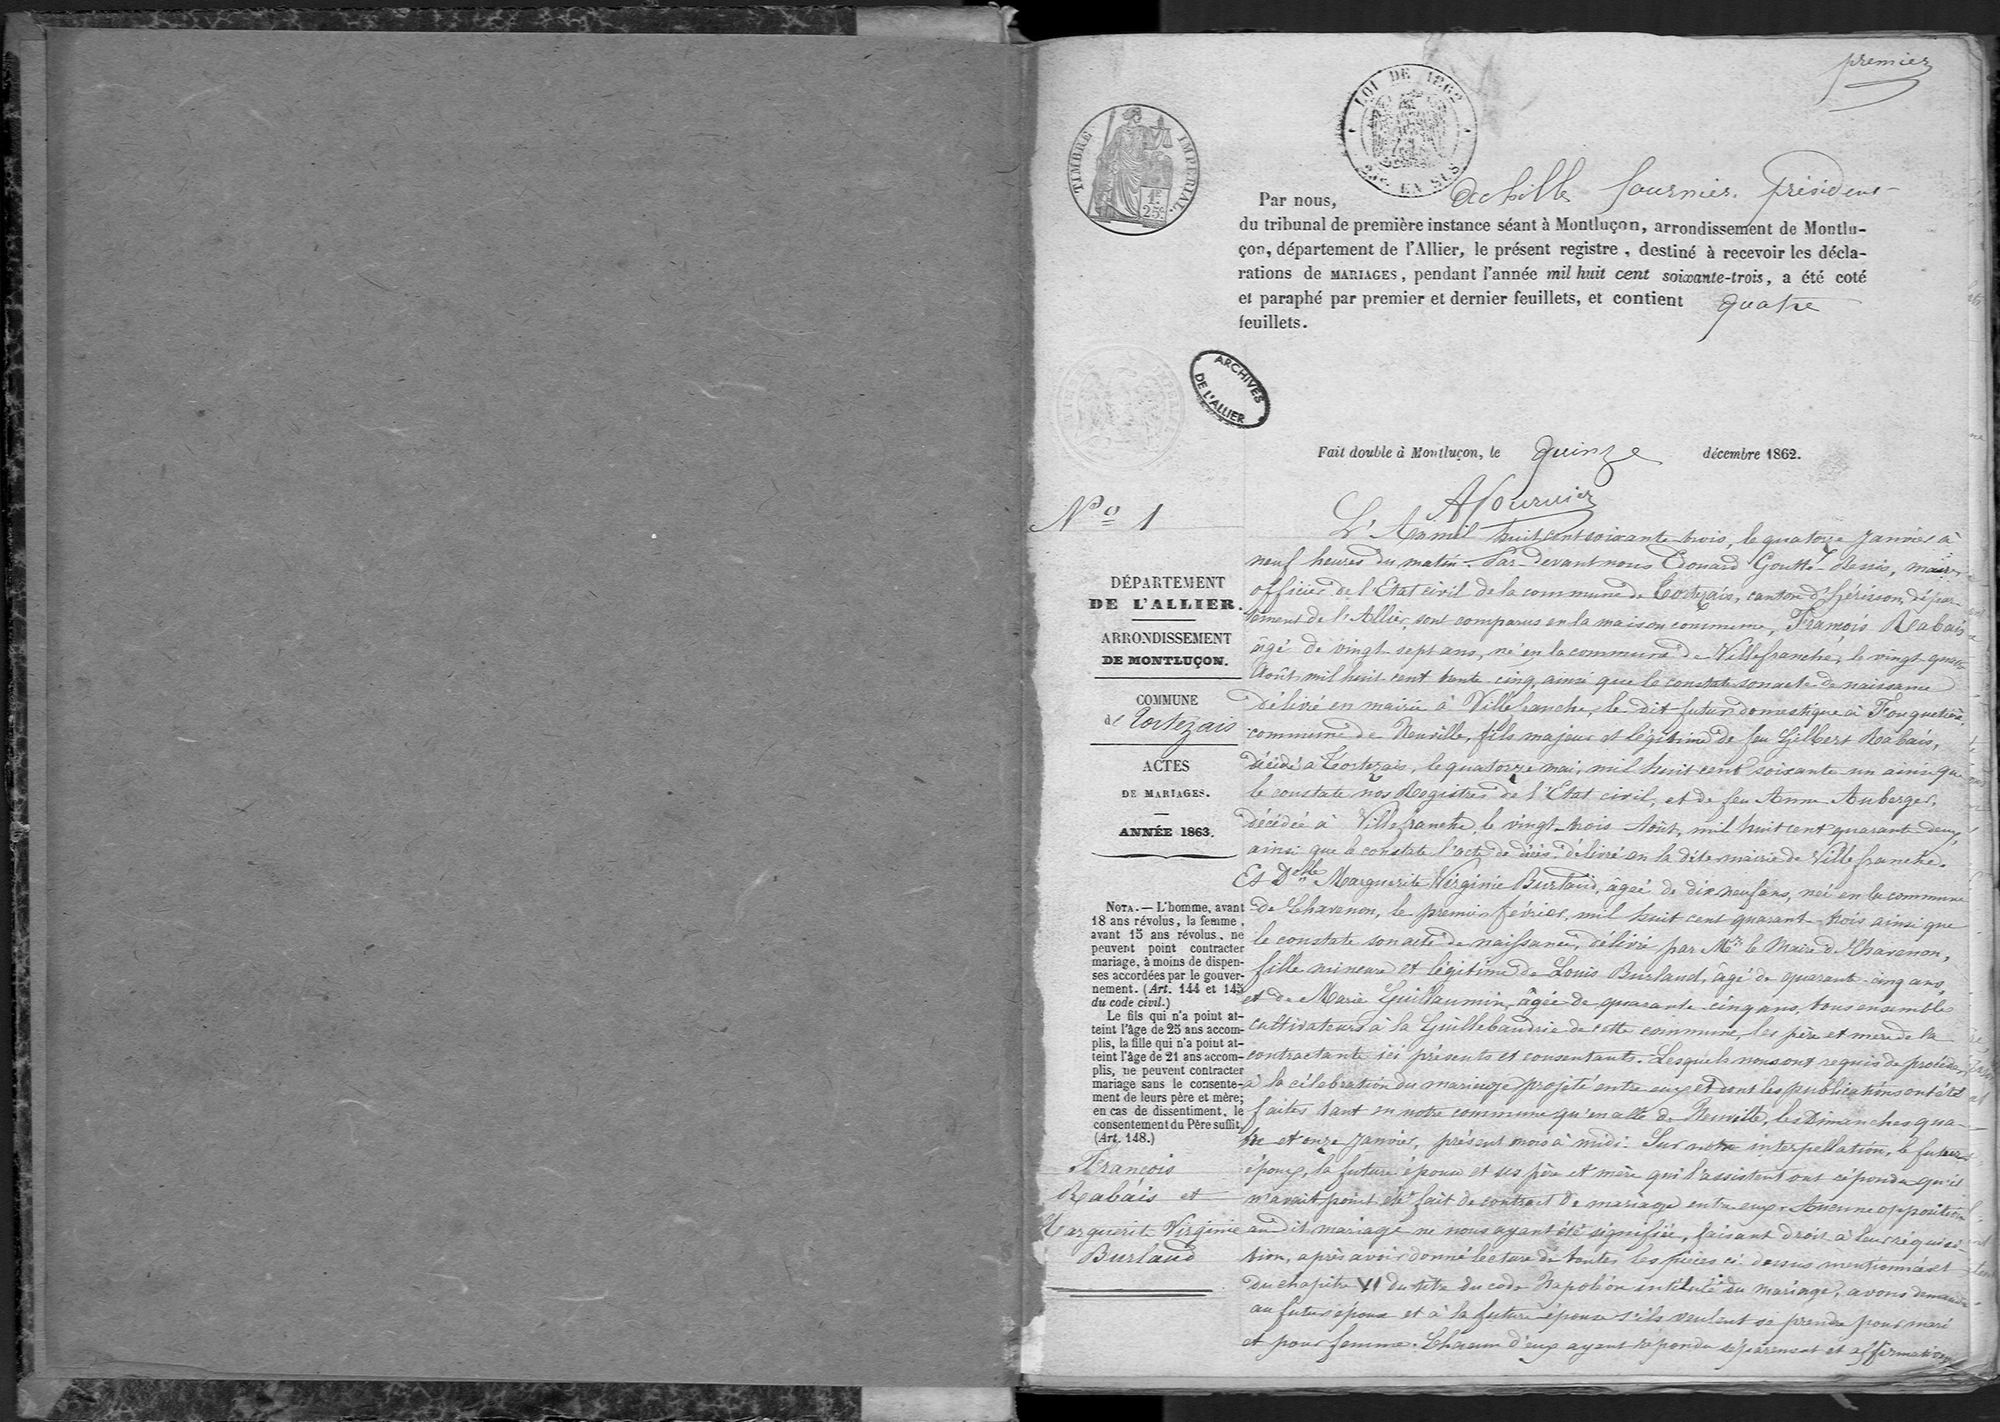 premier
LOI DE 1862
25c. EN SUS
TIMBRE IMPERIAL
1f. 25c
Par nous, Achille fournier, Président
du tribunal de première instance séant à Montluçon, arrondissement de Montlu-
çon, département de l'Allier, le présent registre, destiné à recevoir les décla-
rations de MARIAGES, pendant l'année mil huit cent soixante-trois, a été coté
et paraphé par premier et dernier feuillets, et contient quatre
feuillets.
ARCHIVES
DE L'ALLIER
Fait double à Montluçon, le quinze décembre 1862.
Afournier
No 1
DÉPARTEMENT
DE L'ALLIER.
ARRONDISSEMENT
DE MONTLUÇON.
COMMUNE
de Tortezais
ACTES
DE MARIAGES.
ANNÉE 1863.
NOTA. — L'homme, avant
18 ans révolus, la femme,
avant 15 ans révolus, ne
peuvent point contracter
mariage, à moins de dispen-
ses accordées par le gouver-
nement. (Art. 144 et 145
du code civil.)
Le fils qui n'a point at-
teint l'âge de 25 ans accom-
plis, la fille qui n'a point at-
teint l'âge de 21 ans accom-
plis, ne peuvent contracter
mariage sans le consente-
ment de leurs père et mère;
en cas de dissentiment, le
consentement du Père suffit.
(Art. 148.)
François
Rabais et
Marguerite Virginie
Burlaud
L'An mil huit cent soixante trois, le quatorze Janvier à
neuf heures du matin. Par-devant nous Edouard Goutte-Plessis, maire
officier de l'Etat civil de la commune de Tortezais, canton d'hérisson, dépar-
tement de l'Allier, sont comparus en la maison commune, François Rabais
âgé de vingt sept ans, né en la commune de Villefranche, le vingt quatre
Août mil huit cent trente cinq, ainsi que le constate son acte de naissance
délivré en mairie à Villefranche, le dit futur domestique à
commune de Neuville, fils majeur et légitime de feu Gilbert Rabais,
décédé à Tortezais, le quatorze mai, mil huit cent soixante un ainsi que
le constate nos Registres de l'Etat civil, et de feu Anne Auberger,
décédée à Villefranche, le vingt-trois Août, mil huit cent quarante deux,
ainsi que le constate l'acte de décès délivré en la dite mairie de Villefranche.
Et Delle Marguerite Virginie Burlaud, âgée de dix neuf ans, née en la commune
de Chavenon, le premier février, mil huit cent quarante trois ainsi que
le constate son acte de naissance, délivré par Mr. le Maire de Chavenon,
fille mineure et légitime de Louis Burlaud, âgé de quarante cinq ans,
et de Marie Guillaumin, âgée de quarante cinq ans, tous ensemble
cultivateurs à la Guillebaudrie de cette commune, les père et mère de la
contractante ici présents et consentants. Lesquels nous ont requis de procéder
à la célébration du mariage projeté entre eux et dont les publications ont été
faites tant en notre commune qu'en celle de Neuville, les Dimanches qua-
tre et onze Janvier, présent mois à midi. Sur notre interpellation, le futur
époux, la future épouse et ses père et mère qui l'assistent ont répondu qu'il
n'avait point été fait de contrat de mariage entre eux. Aucune opposition
au dit mariage ne nous ayant été signifiée, faisant droit à leur réquisi-
tion, après avoir donné lecture de toutes les pièces ci dessus mentionnées et
du chapitre VI du titre du code Napoléon intitulé du mariage, avons demandé
au futur époux et à la future épouse s'ils veulent se prendre pour mari
et pour femme. Chacun d'eux ayant répondu séparément et affirmativem